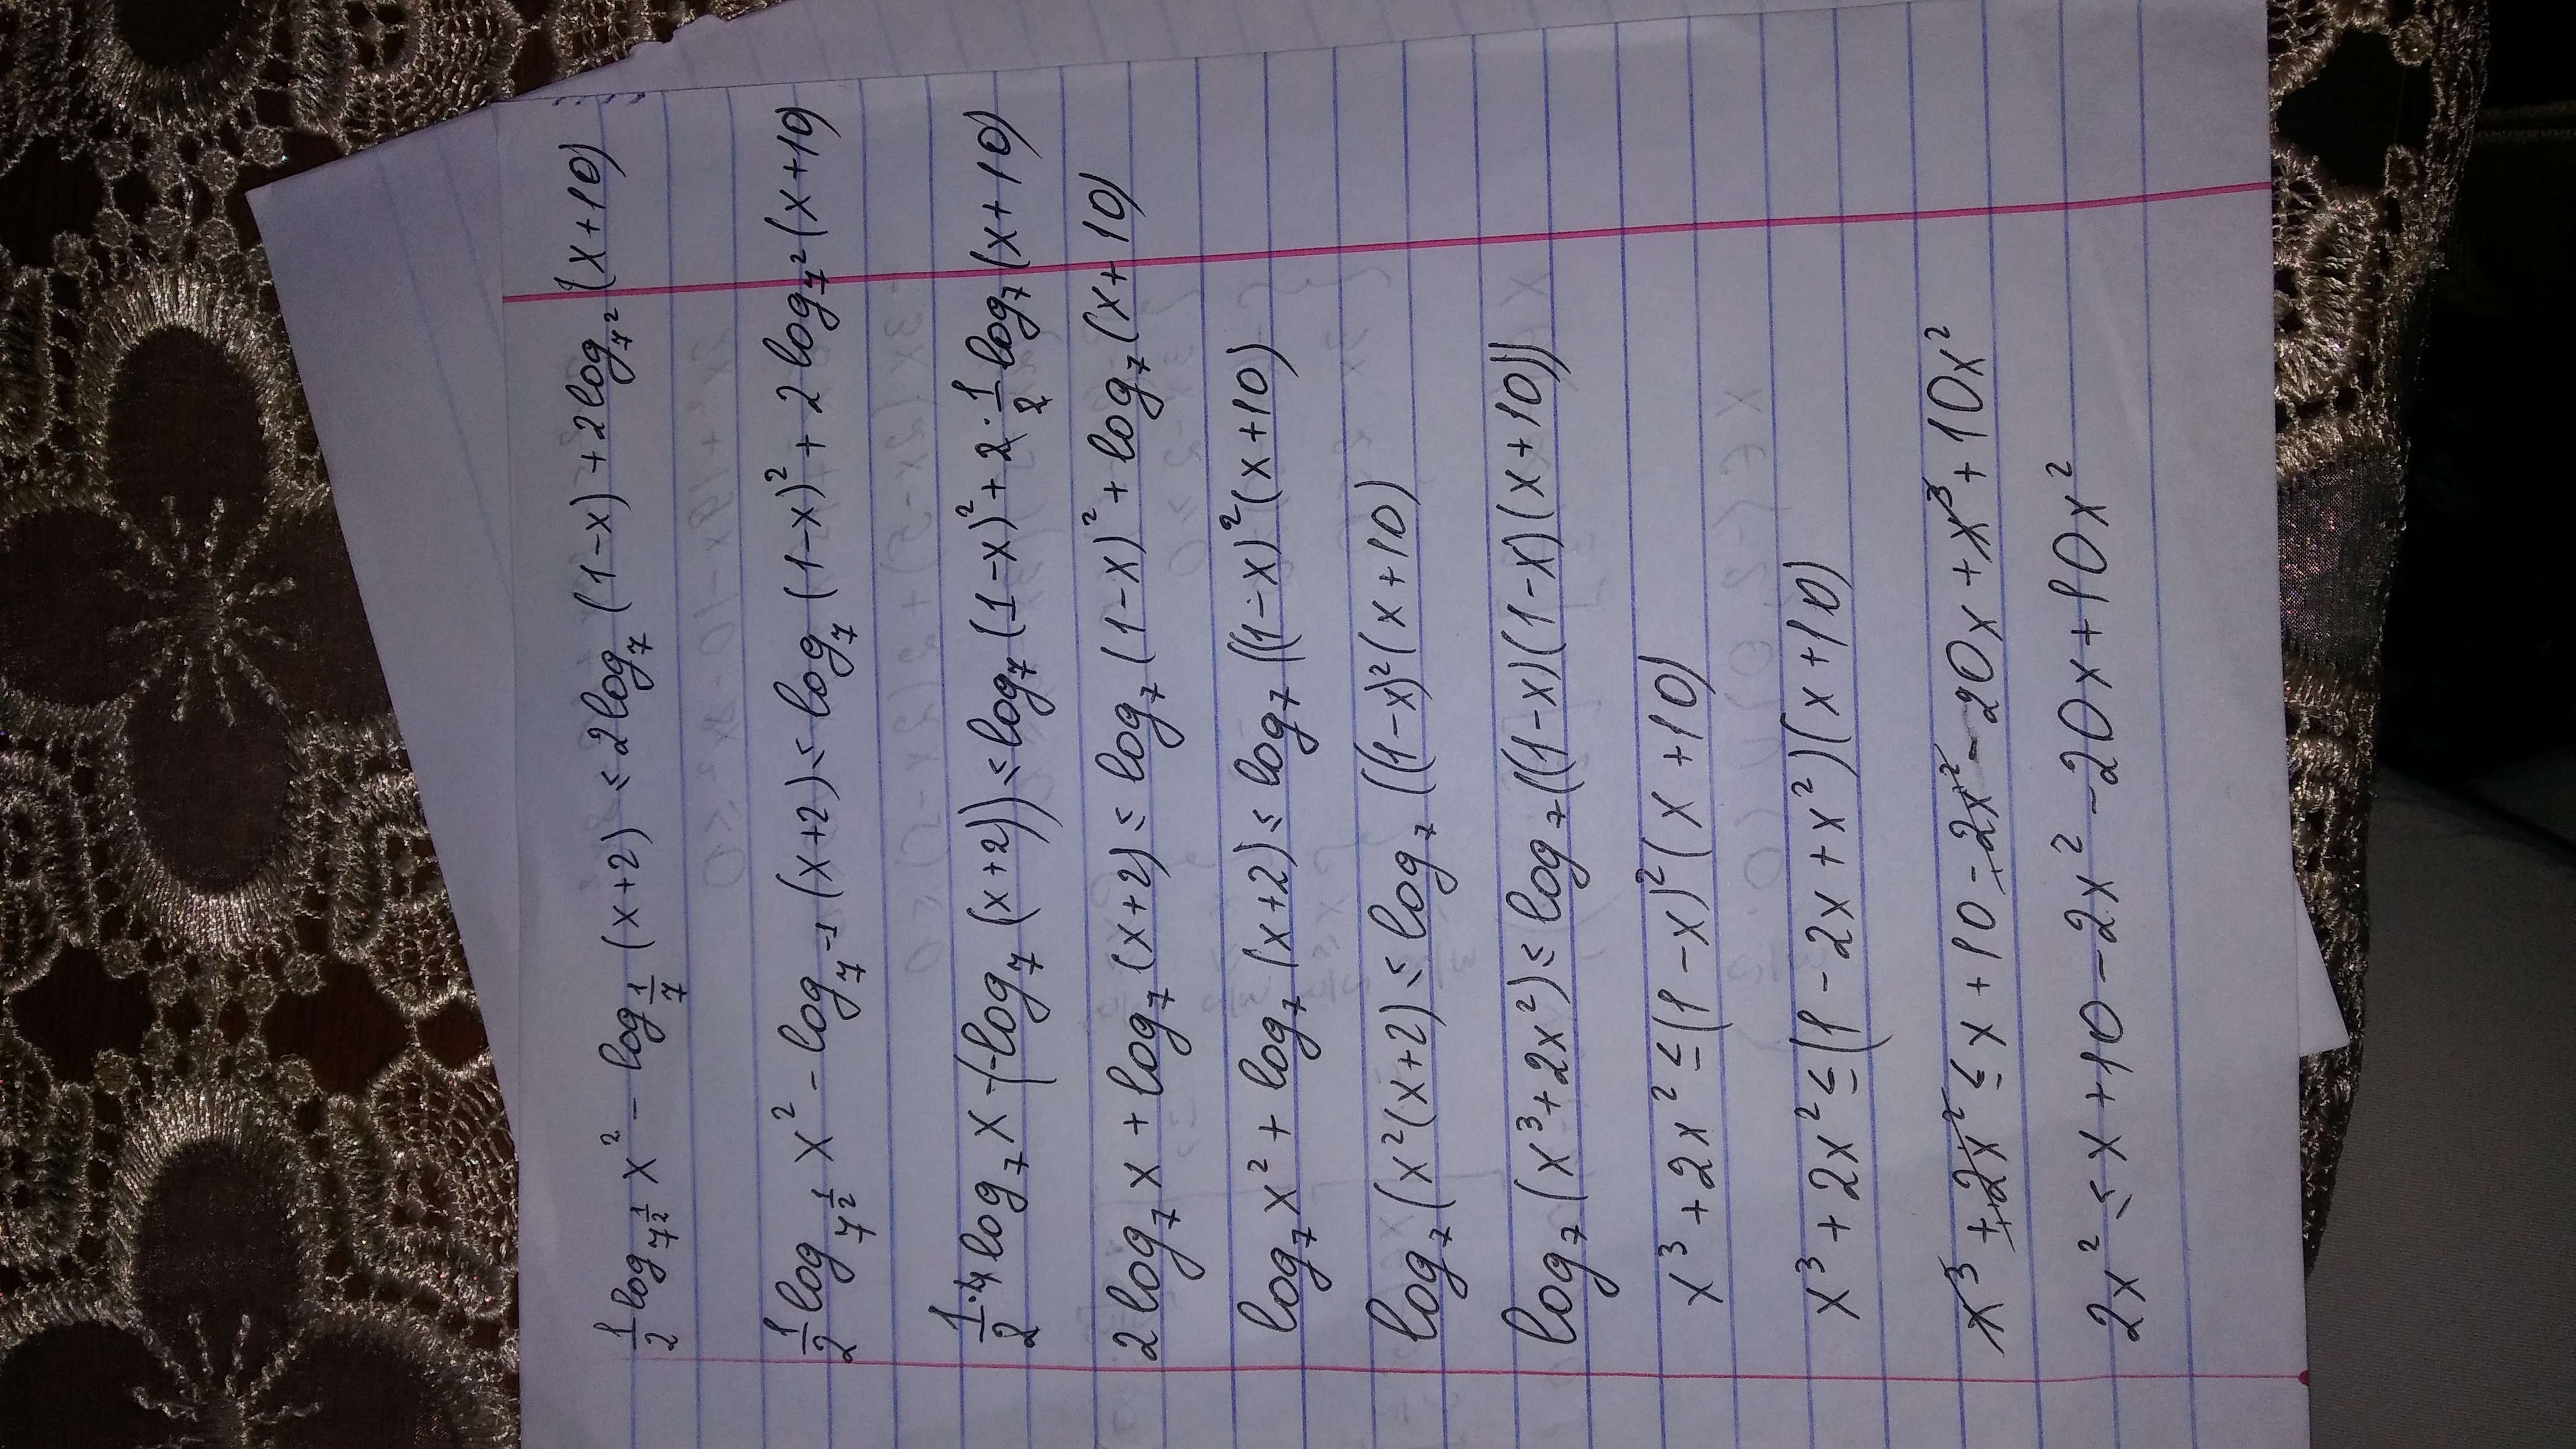 ½log_{7^{½}} x² - log_{1/7} (x+2) ≤ 2log₇ (1-x) + 2log_{7²} (x+10)
½log_{7^{½}} x² - log_{7⁻¹} (x+2) ≤ log₇ (1-x)² + 2log_{7²} (x+10)
½·4log₇ x - (-log₇ (x+2)) ≤ log₇ (1-x)² + 2·½log₇ (x+10)
2log₇ x + log₇ (x+2) ≤ log₇ (1-x)² + log₇ (x+10)
log₇ x² + log₇ (x+2) ≤ log₇ ((1-x)² (x+10)
log₇ (x² (x+2) ≤ log₇ ((1-x)² (x+10)
log₇ (x³+2x²) ≤ log₇ ((1-x)(1-x)(x+10))
x³ + 2x² ≤ (1-x)² (x+10)
x³ + 2x² ≤ (1-2x+x²)(x+10)
x³ + 2x² ≤ x+10-2x²-20x+x³+10x²
2x² ≤ x+10-2x²-20x+10x²